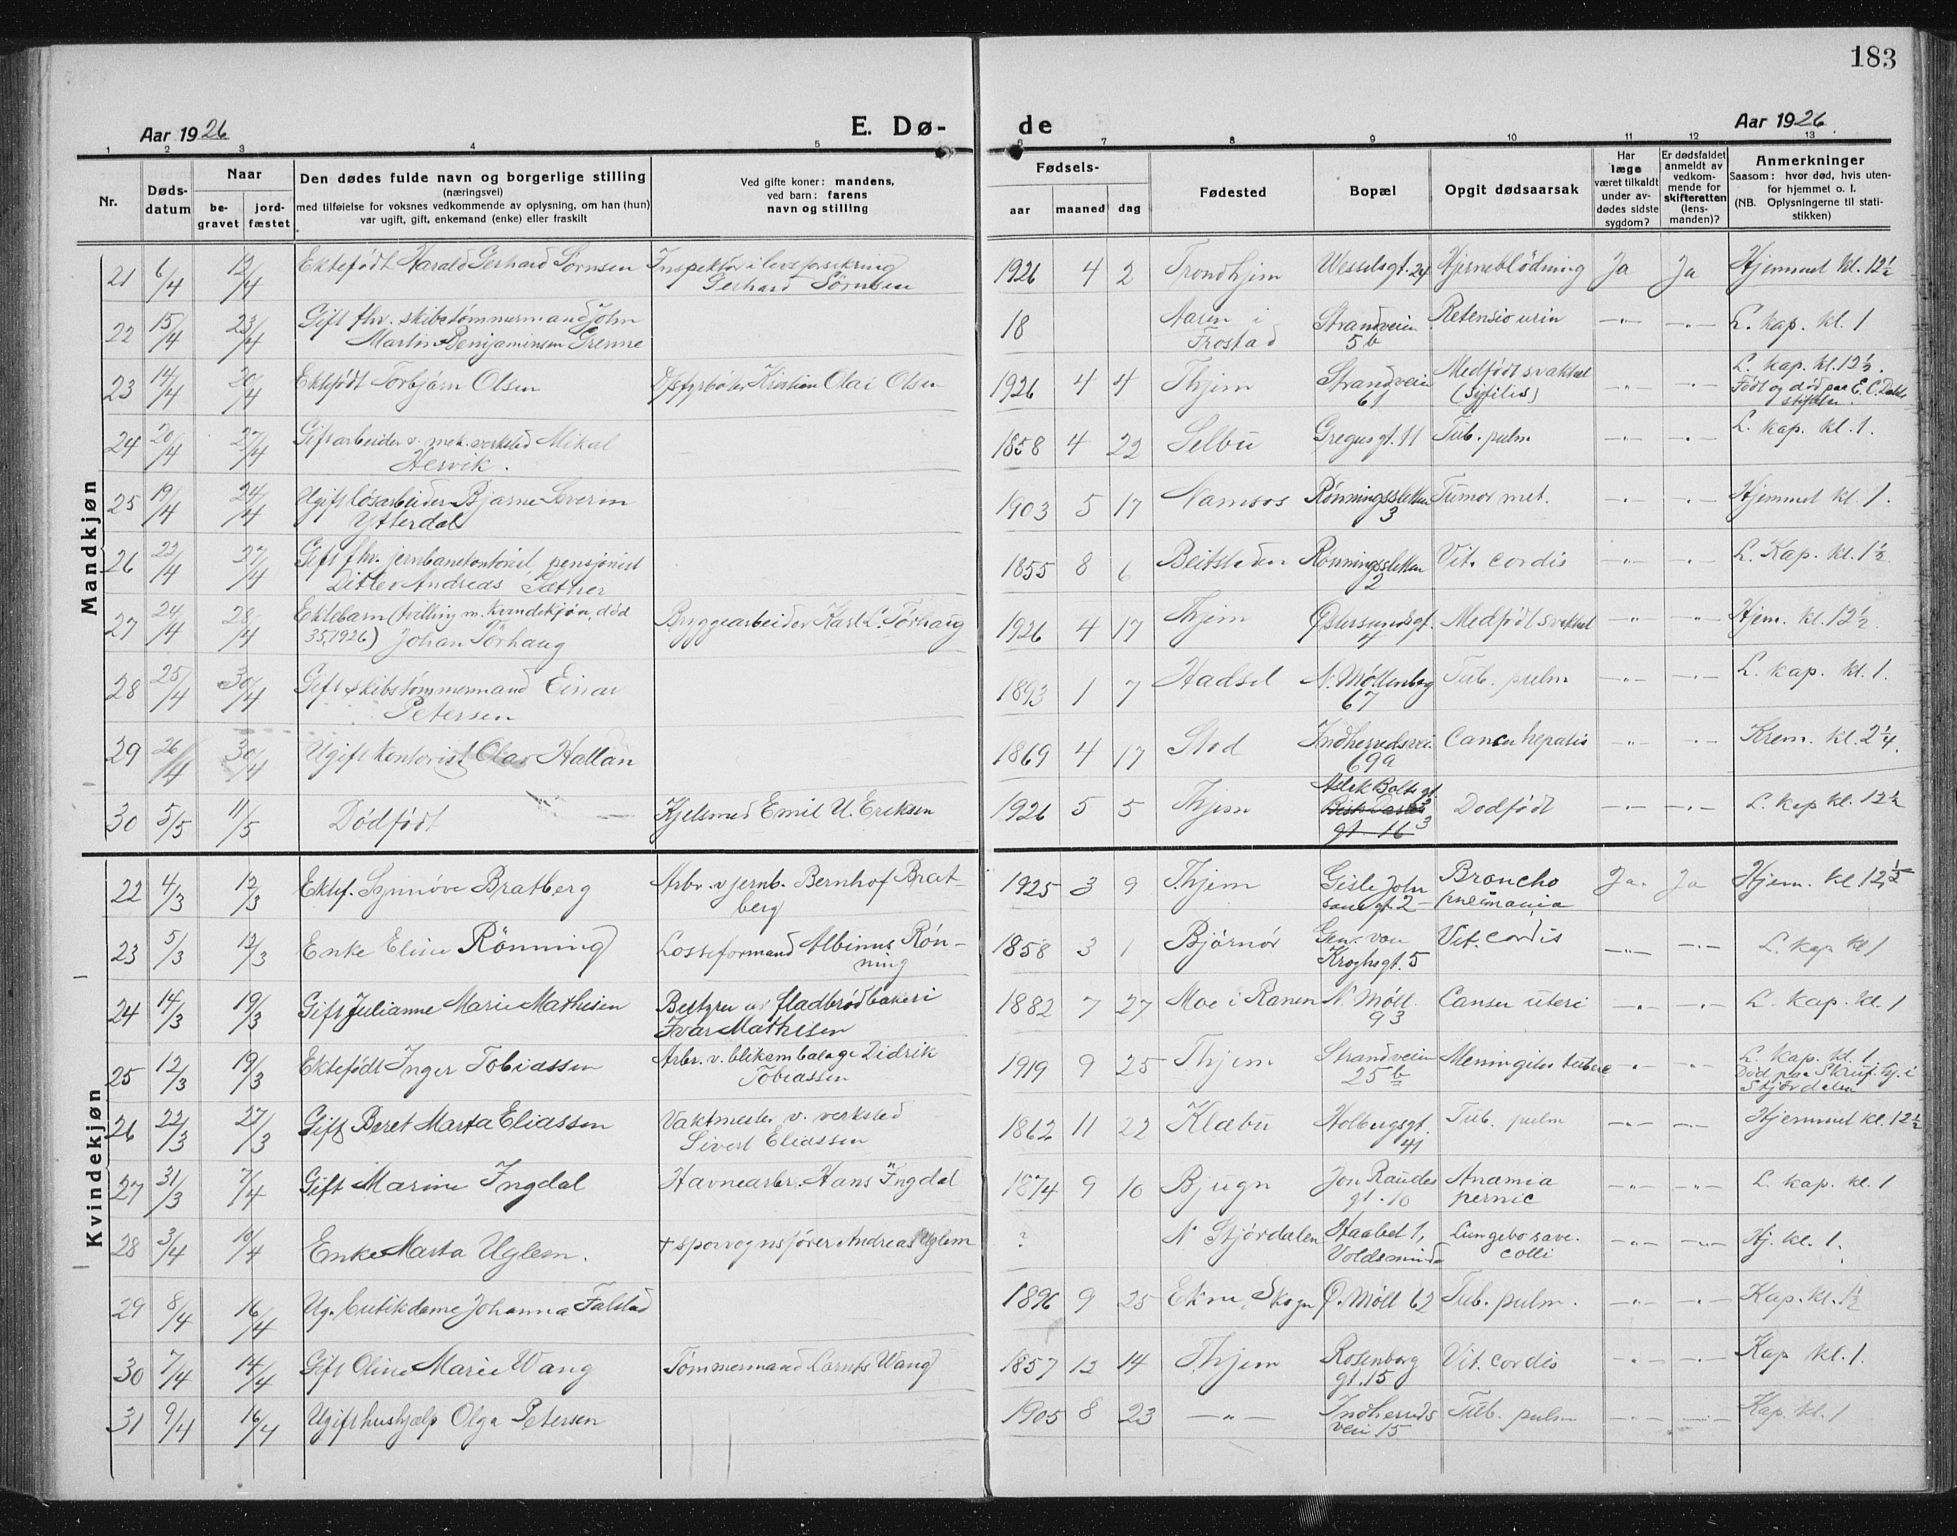 183
Aar 1926 E. Dø- de Aar 1926
1 2 3 4 5 6 7 8 9 10 11 12 13
Nr. Døds-datum Naar be-gravet jord-fæstet Den dødes fulde navn og borgerlige stilling (næringsvei) med tilføielse for voksnes vedkommende av oplysning, om han (hun) var ugift, gift, enkemand (enke) eller fraskilt Ved gifte koner: mandens, ved barn: farens navn og stilling Fødsels- aar maaned dag Fødested Bopæl Opgit dødsaarsak Har læge været tilkaldt under av-dødes sidste sygdom? Er dødsfaldet anmeldt av vedkom-mende for skifteretten (lens-manden)? Anmerkninger Saasom: hvor død, hvis uten-for hjemmet o. l. (NB. Oplysningerne til stati-stikken)
Mandkjøn
21 6/4 12/4 Ektefødt Harald Gerhard Sørnsen Inspektør i livsforsikring Gerhard Sörnsen 1926 4 2 Trondhjem Wesselsgt. 24 Hjerneblödning Ja Ja Hjemmet kl. 12½
22 15/4 23/4 Gift fhv. skibstømmermand John Martin Benjaminsen Grenne 18 Aasen i Frostad Strandveien 5b Retensio urin -"- -"- L. kap. kl. 1
23 14/4 20/4 Ektefødt Torbjørn Olsen Kristian Olai Olsen 1926 4 4 Thjem Strandveien 61 Medfødt svakhet (Syfilis) -"- -"- L. kap. kl. 12½. Født og død paa E. C. Dahls stiftelse.
24 20/4 27/4 Gift arbeider v. mek. verksted Mikal Hesvik. 1858 4 22 Selbu Gregusgt. 11 Tub. pulm -"- -"- L. kap. kl. 1.
25 19/4 24/4 Ugift løsarbeider Bjarne Severin Ytterdal 1903 5 17 Namsos Rønningssletten 3 Tumor met. -"- -"- Hjemmet kl. 1.
26 22/4 27/4 Gift fhv. jernbanekontorist, pensjonist Ditlev Andreas Sæther 1855 8 6 Beitstaden Rønningssletten 2 Vit. cordis -"- -"- L. Kap. kl. 1½
27 24/4 28/4 Ektebarn (tvilling m. kvindekjøn, død 35, 1926) Johan Törhaug Bryggearbeider Karl L. Törhaug 1926 4 17 Thjem Østersundsgt. 4 Medfødt svakhet " -"- Hjem. kl. 12½.
28 25/4 30/4 Gift skibstømmermand Einar Petersen 1893 1 7 Hadsel N. Møllenberg 67 Tub. pulm -"- -"- L. kap. kl. 1.
29 26/4 30/4 Ugift kontorist Olav Hallan 1869 4 17 Stod Indherredsvei 69a Cancer hepatis -"- -"- Krem. kl. 2¼.
30 5/5 11/5 Dødfødt Kjelsmed Emil U. Eriksen 1926 5 5 Thjem Aslak Bolts gt. 3 gt 16 Dodfödt -"- -"- L. kap kl. 12½
Kvindekjøn
22 4/3 12/3 Ektef. Synnöve Bratberg Arb. v jernb. Bernhof Brat-berg 1925 3 9 Thjem Gisle Johnsonsgt. 2 Broncho pneimonia Ja. Ja Hjem. kl 12½
23 5/3 12/3 Enke Eline Rönning Losseformand Albinus Rön-ning 1858 3 1 Bjørnör Gen. von Kroghsgt. 5 Vit. cordis -"- -"- L. kap kl 1
24 14/3 19/3 Gift Julianne Marie Mathisen Bestyrer av fladbrødbakeri Ivar Mathisen 1882 7 27 Moe i Ranen N. Møll. 93 Canser uteri -"- -"- L. kap. kl. 1
25 12/3 19/3 Ektefødt Inger Tobiassen Arbr. v. blikemballage Didrik Tobiassen 1919 9 25 Thjem Strandveien 25b Meningites tuberc -"- -"- L. kap. kl. 1 Død paa i Stjördalen
26 22/3 27/3 Gift Beret Marta Eliassen Vaktmester v. verksted Sivert Eliassen 1862 11 22 Klæbu Holbergsgt. 41 Tub. pulm -"- -"- Hjemmet kl. 12½
27 31/3 7/4 Gift Marine Ingdal Havnearbr. Hans Ingdal 1874 9 10 Bjugn Jon Raudes gt. 10 Anamia pernic -"- -"- L. kap. kl. 1
28 3/4 10/4 Enke Marta Uglem. + sporvognsfører Andreas Uglem ? N Stjördalen Haabet 1, Voldsminde colli -"- -"- Hj. kl. 1.
29 8/4 16/4 Ug. butikdame Johanna Falstad 1896 9 25 Ekne, Skogn Ø. Møll 62 Tub. pulm. -"- -"- Kap. kl. 1½
30 7/4 14/4 Gift Oline Marie Wang Tömmermand Lornts Wang 1857 12 14 Thjem Rosenborg gt. 15 Vit. cordis -"- -"- Kap kl. 1.
31 9/4 16/4 Ugift hushjælp Olga Petersen 1905 8 23 -"- Indherreds veien 15 Tub. pulm -"- -"- Kap. kl. 1